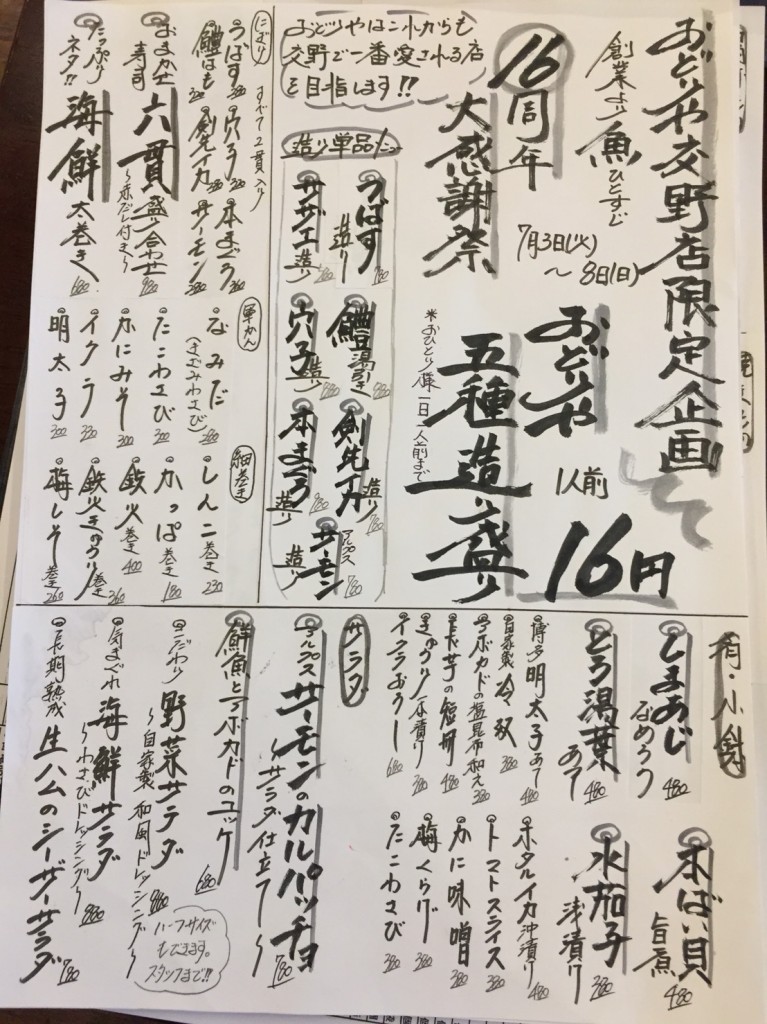 おどりや交野店限定企画
創業より魚ひとすじ
16周年
大感謝祭
7月3日(火)
〜8日(日)
おどりや
五種造り盛り
1人前
16円
※おひとり様一日一人前まで
おどりやはこれからも
交野で一番愛される店
を目指します!!
造り単品
つばす造り 780
鱧湯引き 980
剣先イカ造り 780
サザエ造り 980
穴子造り 880
本まぐろ造り 980
アルプスサーモン造り 780
にぎり すべて2貫入り
うばす
穴子
本まぐろ 360
鱧はも
剣先イカ
サーモン
おまかせ寿司
六貫盛り合わせ 980
〜赤だし付き〜
たっぷりネタ!!
海鮮太巻き 680
軍かん
なみだ
(きざみわさび)
たこわさび 300
かにみそ 300
イクラ
明太子 300
細巻き
しんこ巻き 230
かっぱ巻き 180
鉄火巻き 400
鉄火きゅうり巻き 260
梅しそ巻き 260
肴・小鉢
しまあじなめろう 480
とろ湯葉あて 480
博多明太子あて 480
自家製冷奴 380
アボカドの塩昆布和え 380
長芋の短冊 480
きゅうり一本漬け 380
イクラおろし 680
本ばい貝旨煮 480
水茄子浅漬け 380
ホタルイカ沖漬け 480
トマトスライス 380
かに味噌 380
梅くらげ 380
たこわさび 380
サラダ
アルプスサーモンのカルパッチョ
〜サラダ仕立て〜 780
鮮魚とアボカドのユッケ 680
こだわり野菜サラダ
〜自家製和風ドレッシング〜
気まぐれ海鮮サラダ
〜わさびドレッシング〜
長期熟成生ハムのシーザーサラダ 780
ハーフサイズ
もできます。
スタッフまで!!